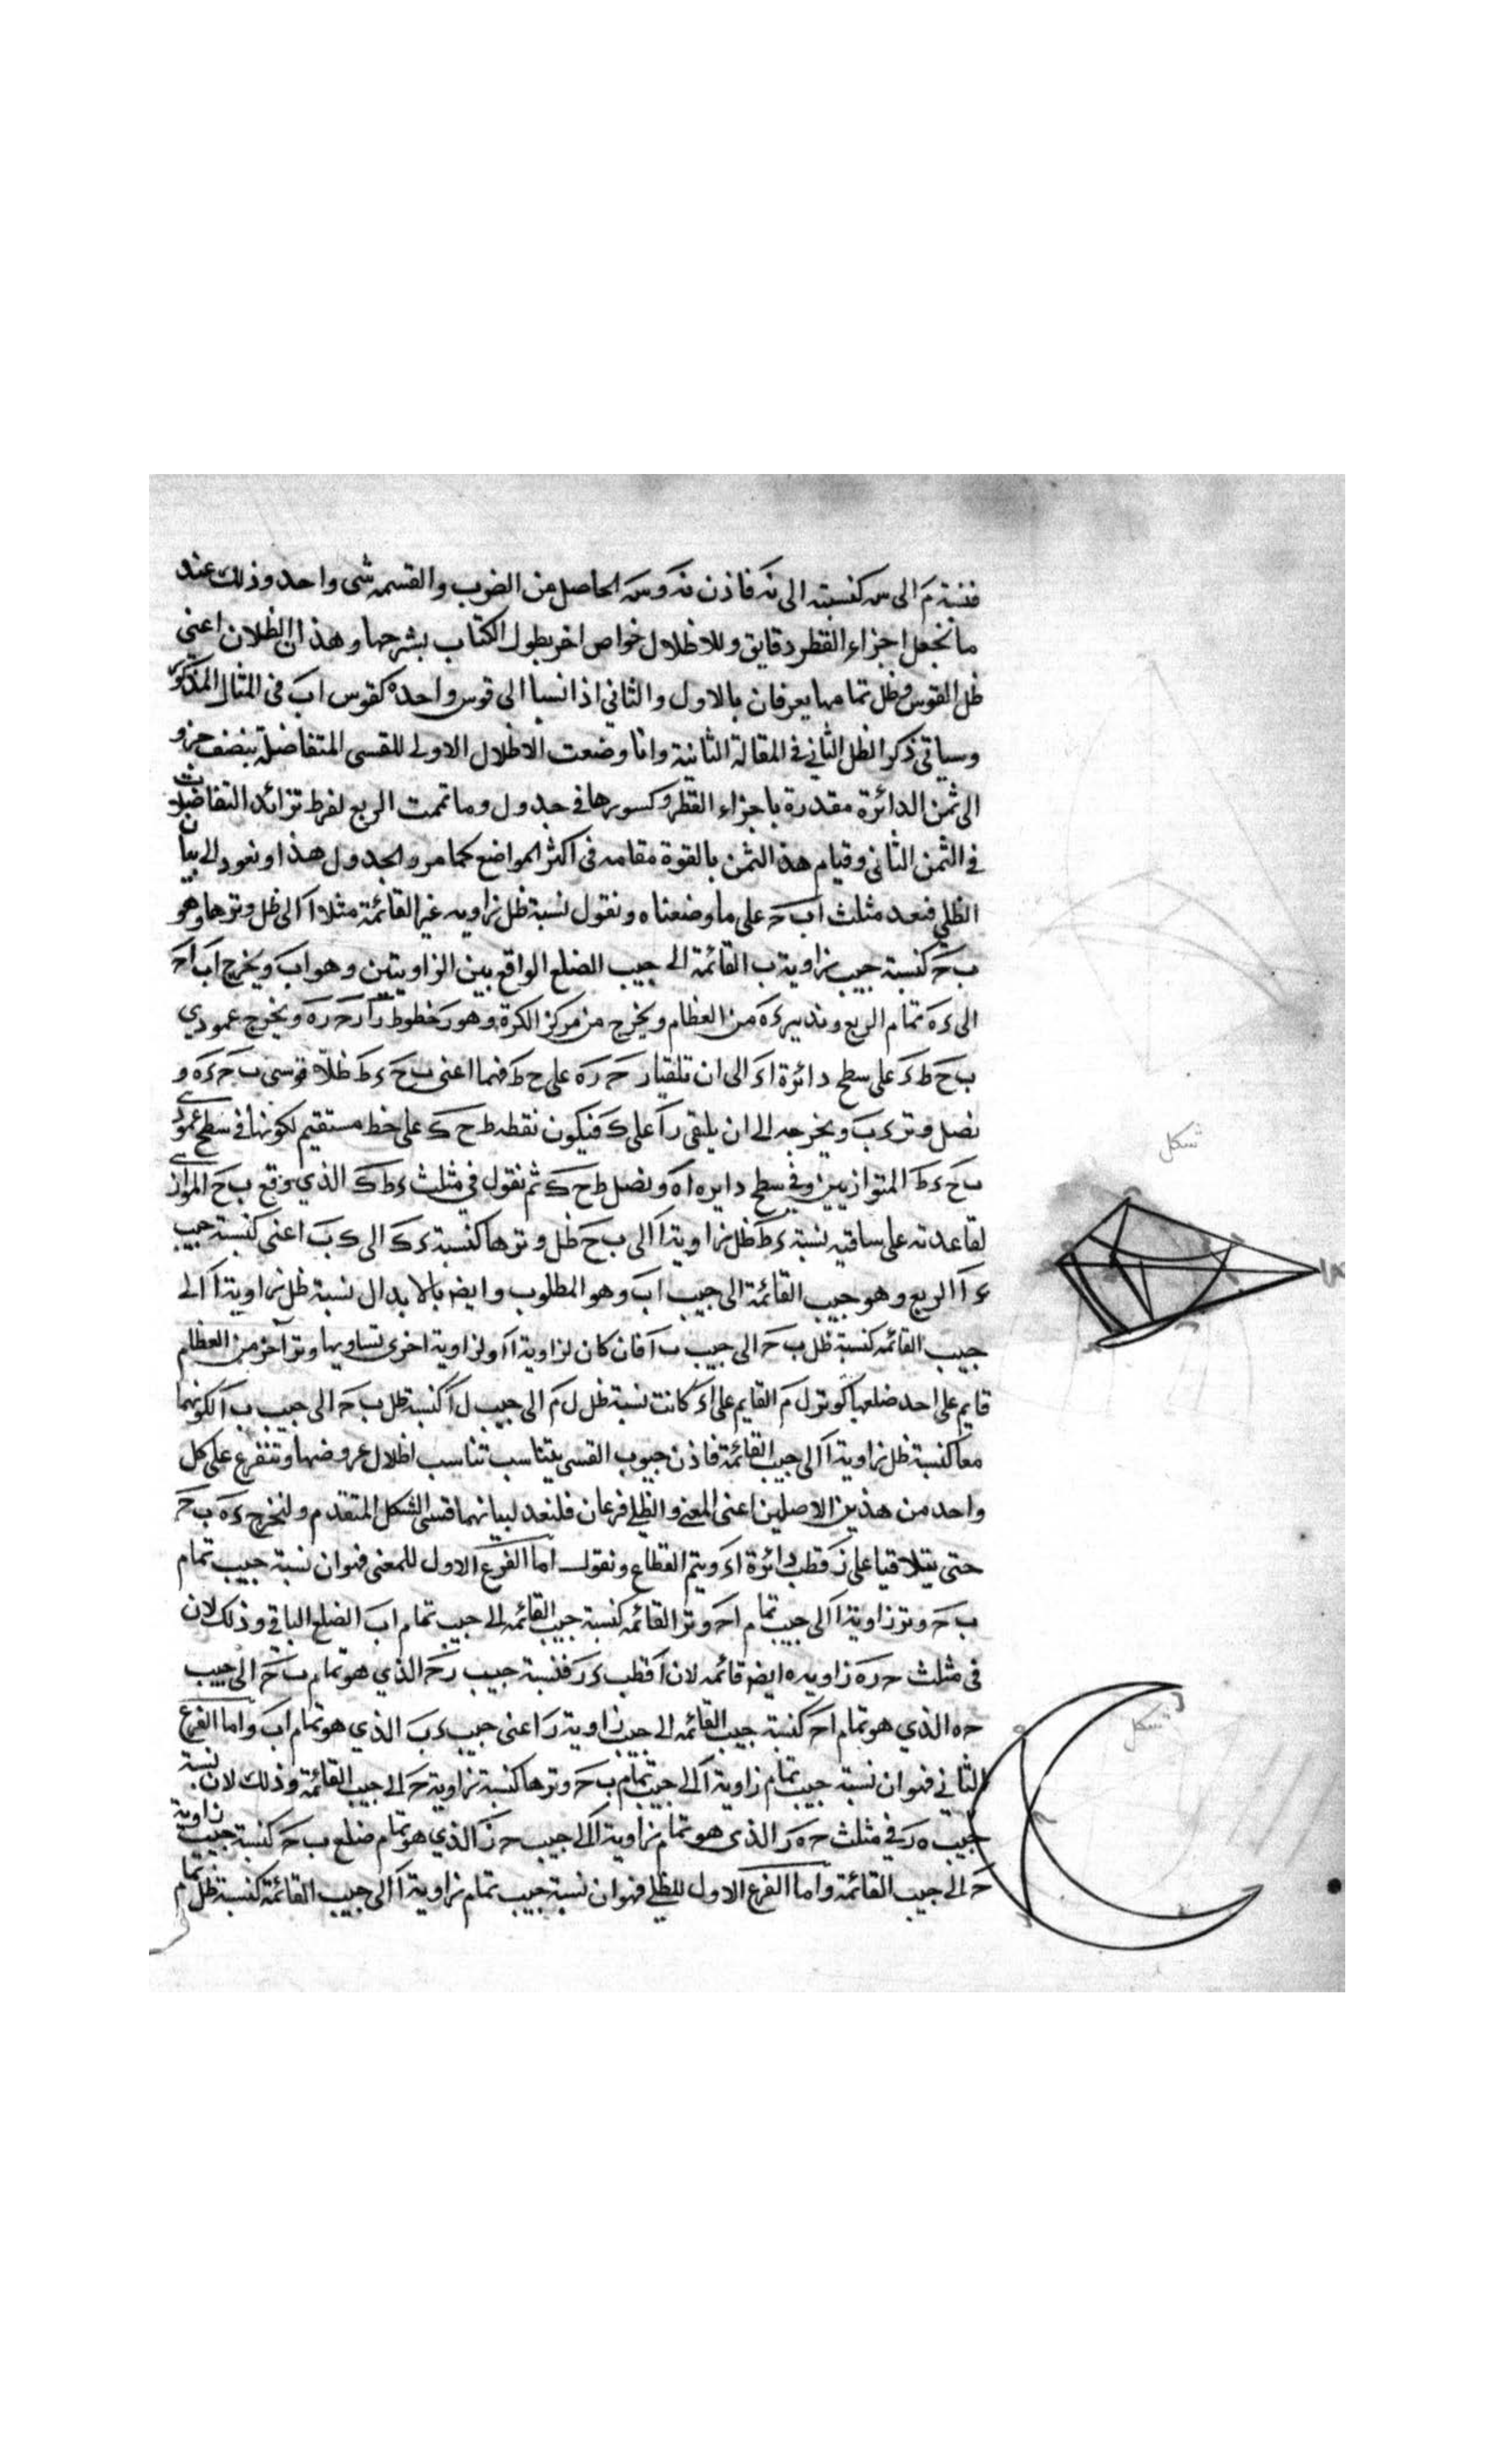 فنسبة م الى س كنسبته الى نه فاذن نه وسه الحاصل من الضرب والقسمه شى واحد وذلك عند
ما نجعل اجزاء القطر دقايق وللاظلال خواص اخر يطول الكتاب بشرحها وهذا ان الظلان اعنى
ظل القوس وظل تمامها يعرفان بالاول والثانى اذا نسبا الى قوس واحده كقوس اب فى المثال المذكور
وسياتى ذكر الظل الثانى فى المقالة الثانية وانا وضعت الاظلال الاولى للقسى المتفاضلة بنصف جزو
الى ثمن الدائرة مقدرة باجزاء القطر وكسورها فى جدول وما تممت الربع لفرط تزائد التفاضلات
فى الثمن الثانى وقيام هذا الثمن بالقوة مقامه فى اكثر المواضع كما مر والجدول هذا ونعود الى بيان
الظلى فنعد مثلث اب ح على ما وضعناه ونقول نسبة ظل زاويه غير القائمة مثلا ا الى ظل وترها وهو
ب ح كنسبة جيب زاوية ب القائمة الى جيب الضلع الواقع بين الزاويتين وهو اب ويخرج اب اح
الى ء ه تمام الربع وندير ء ه من العظام ويخرج من مركز الكرة وهو ر خطوط ر ا ر ح ر ه ويخرج عمودى
ب ح ط ء على سطح دائرة اء الى ان تلقيا ر ح ر ه على ح ط فهما اعنى ب ح ء ط ظلا قوسى ب ح ء ه و
نصل وتر ء ب ويخرجه الى ان يلقى ر ا على ك فيكون نقطه ط ح ك على خط مستقيم لكونها فى سطح عمودى
ب ح ء ط المتوازيين وفى سطح دايره اه ونصل ط ح ك ثم نقول فى مثلث ء ط ك الذي وقع ب ح الموازى
لقاعدته على ساقيه نسبة ء ط ظل زاوية ا الى ب ح ظل وترها كنسبة ء ك الى ك ب اعنى كنسبة جيب
ء ا الربع وهو جيب القائمة الى جيب اب وهو المطلوب وايضا بالابدال نسبة ظل زاوية ا الى
جيب القائمه كنسبة ظل ب ح الى جيب ب ا فان كان لزاوية ا او لزاوية اخرى تساويها وتر آخر من العظام
قايم على احد ضلعيها كوتر ل م القايم على اء كانت نسبة ظل ل م الى جيب ل ا كنسبة ظل ب ح الى جيب ب ا لكونهما
معا كنسبة ظل زاوية ا الى جيب القائمة فاذن جيوب القسى يتناسب تناسب اظلال عروضها وتتفرع على كل
واحد من هذين الاصلين اعنى المغنى والظلى فرعان فلنعد لبيانهما قسى الشكل المتقدم ولنخرج ء ه ب ح
حتى يتلاقيا على ز قطب دائرة اء ويتم القطاع ونقول اما الفرع الاول للمغنى فهو ان نسبة جيب تمام
ب ح وتر زاوية ا الى جيب تمام اح وتر القائمه كنسبة جيب القائمه الى جيب تمام اب الضلع الباقى وذلك لان
فى مثلث ح ر ه زاويه ه ايضا قائمه لان ا قطب ء ر فنسبة جيب ر ح الذي هو تمام ب ح الى جيب
ح ه الذي هو تمام اح كنسبة جيب القائمه الى جيب زاوية ر اعنى جيب ء ب الذي هو تمام اب واما الفرع
الثانى فهو ان نسبة جيب تمام زاوية ا الى جيب تمام ب ح وترها كنسبة زاوية ح الى جيب القائمة وذلك لان نسبة
جيب ه ر فى مثلث ح ه ر الذى هو تمام زاوية ا الى جيب ح ز الذي هو تمام ضلع ب ح كنسبة جيب زاوية
ح الى جيب القائمة واما الفرع الاول للظلى فهو ان نسبة جيب تمام زاوية ا الى جيب القائمة كنسبة ظل تمام
شكل
شكل